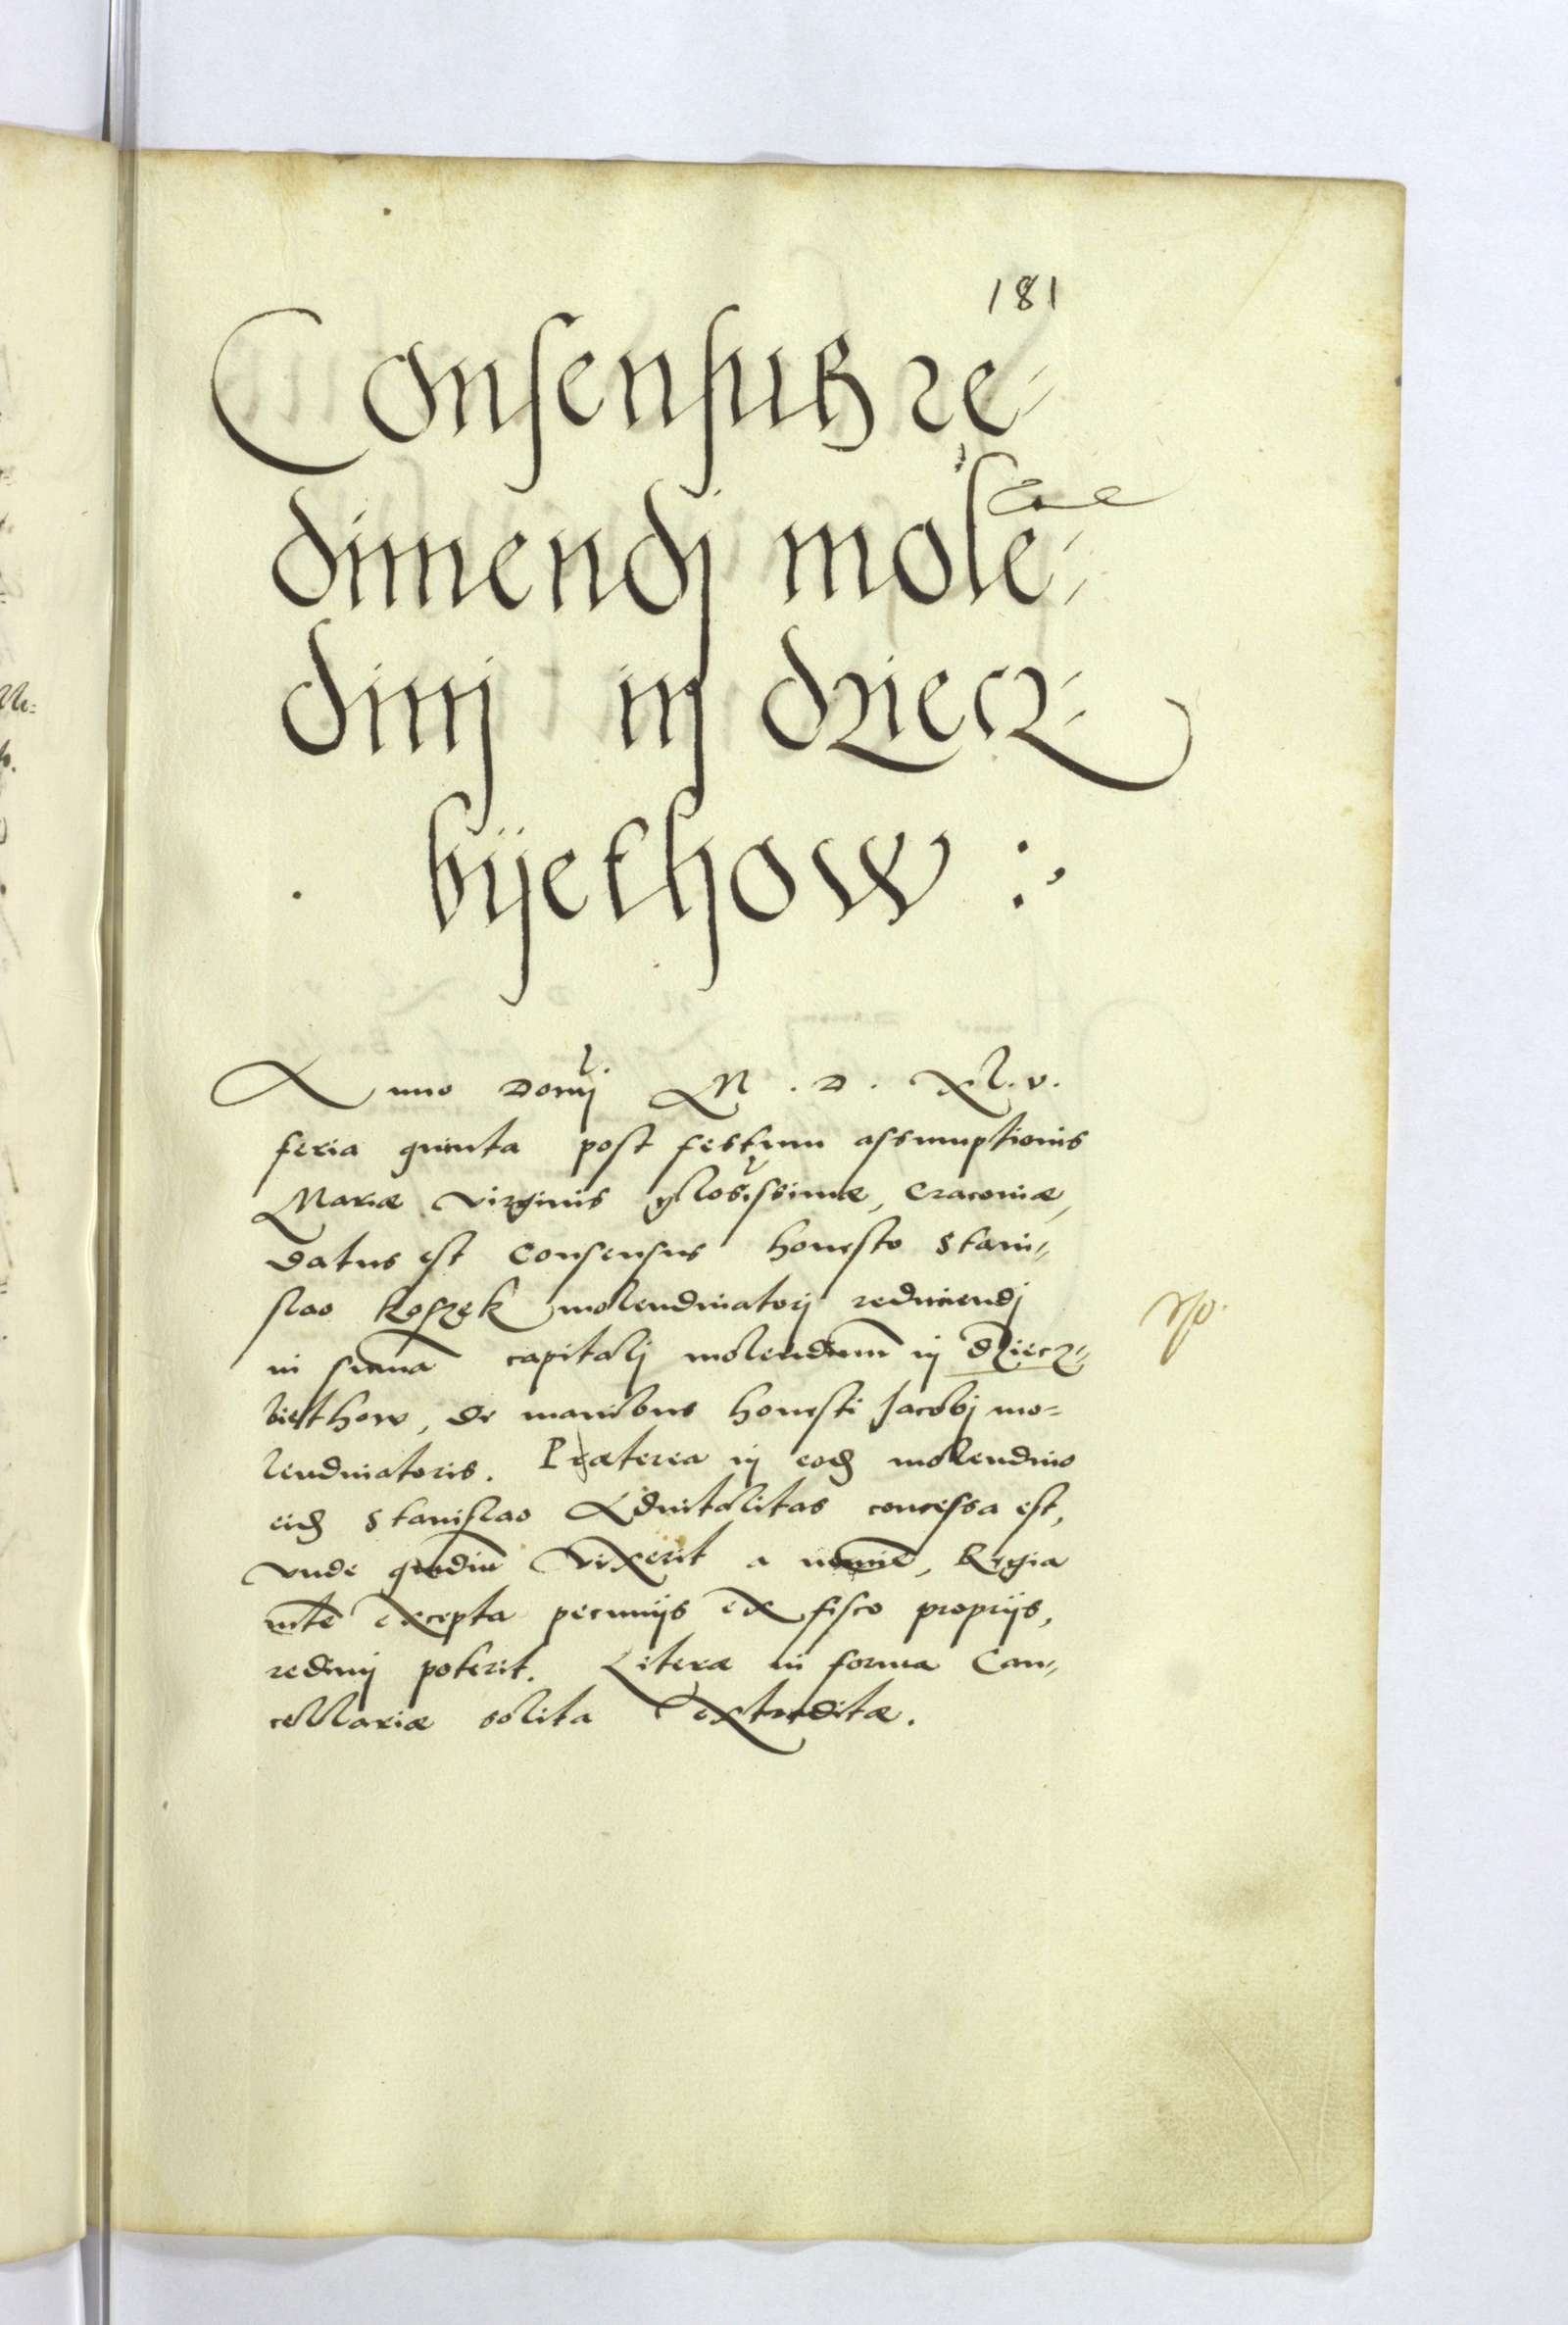 181
Consensus re-
dimendj molē-
dinj in dziecz-
bijethow :,
Anno Domj M. D. Xl. v.
feria quinta post festum assumptionis
Mariæ virginis glosissimæ, Cracoviæ,
datus est consensus honesto Stani-
slao koszek molendinatorj redimendj
in summa capitalj molendinum in dziecz-
biethow, de manibus honesti Jacobj mo-
lendinatoris. Præterea in eod molendino
eid Stanislao Aduitalitas concessa est,
vnde quodiu vixerit a nemine, Regia
mte excepta pecunijs ex fisco proprijs,
redimj poterit. Literæ in forma Can-
cellariæ solita extraditæ.